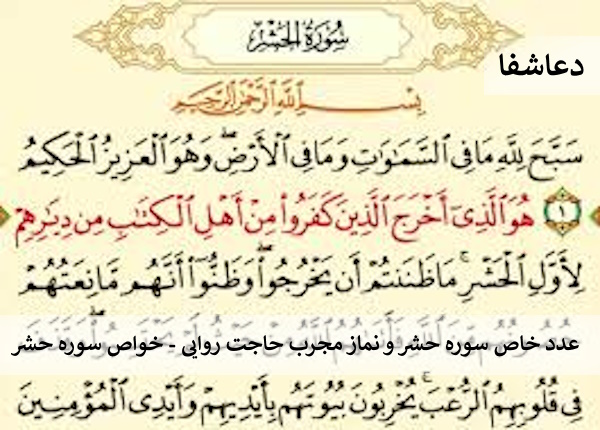 سُورَةُ الحَشْرِ
دعاشفا
بِسْمِ ٱللَّهِ ٱلرَّحْمَٰنِ ٱلرَّحِيمِ
سَبَّحَ لِلَّهِ مَا فِى ٱلسَّمَٰوَٰتِ وَمَا فِى ٱلْأَرْضِۖ وَهُوَ ٱلْعَزِيزُ ٱلْحَكِيمُ
١ هُوَ ٱلَّذِىٓ أَخْرَجَ ٱلَّذِينَ كَفَرُوا۟ مِنْ أَهْلِ ٱلْكِتَٰبِ مِن دِيَٰرِهِمْ
لِأَوَّلِ ٱلْحَشْرِۚ مَا ظَنَنتُمْ أَن يَخْرُجُوا۟ۖ وَظَنُّوٓا۟ أَنَّهُم مَّانِعَتُهُمْ
عدد خاص سوره حشر و نماز مجرب حاجت روایی - خواص سوره حشر
فِى قُلُوبِهِمُ ٱلرُّعْبَۚ يُخْرِبُونَ بُيُوتَهُم بِأَيْدِيهِمْ وَأَيْدِى ٱلْمُؤْمِنِينَ